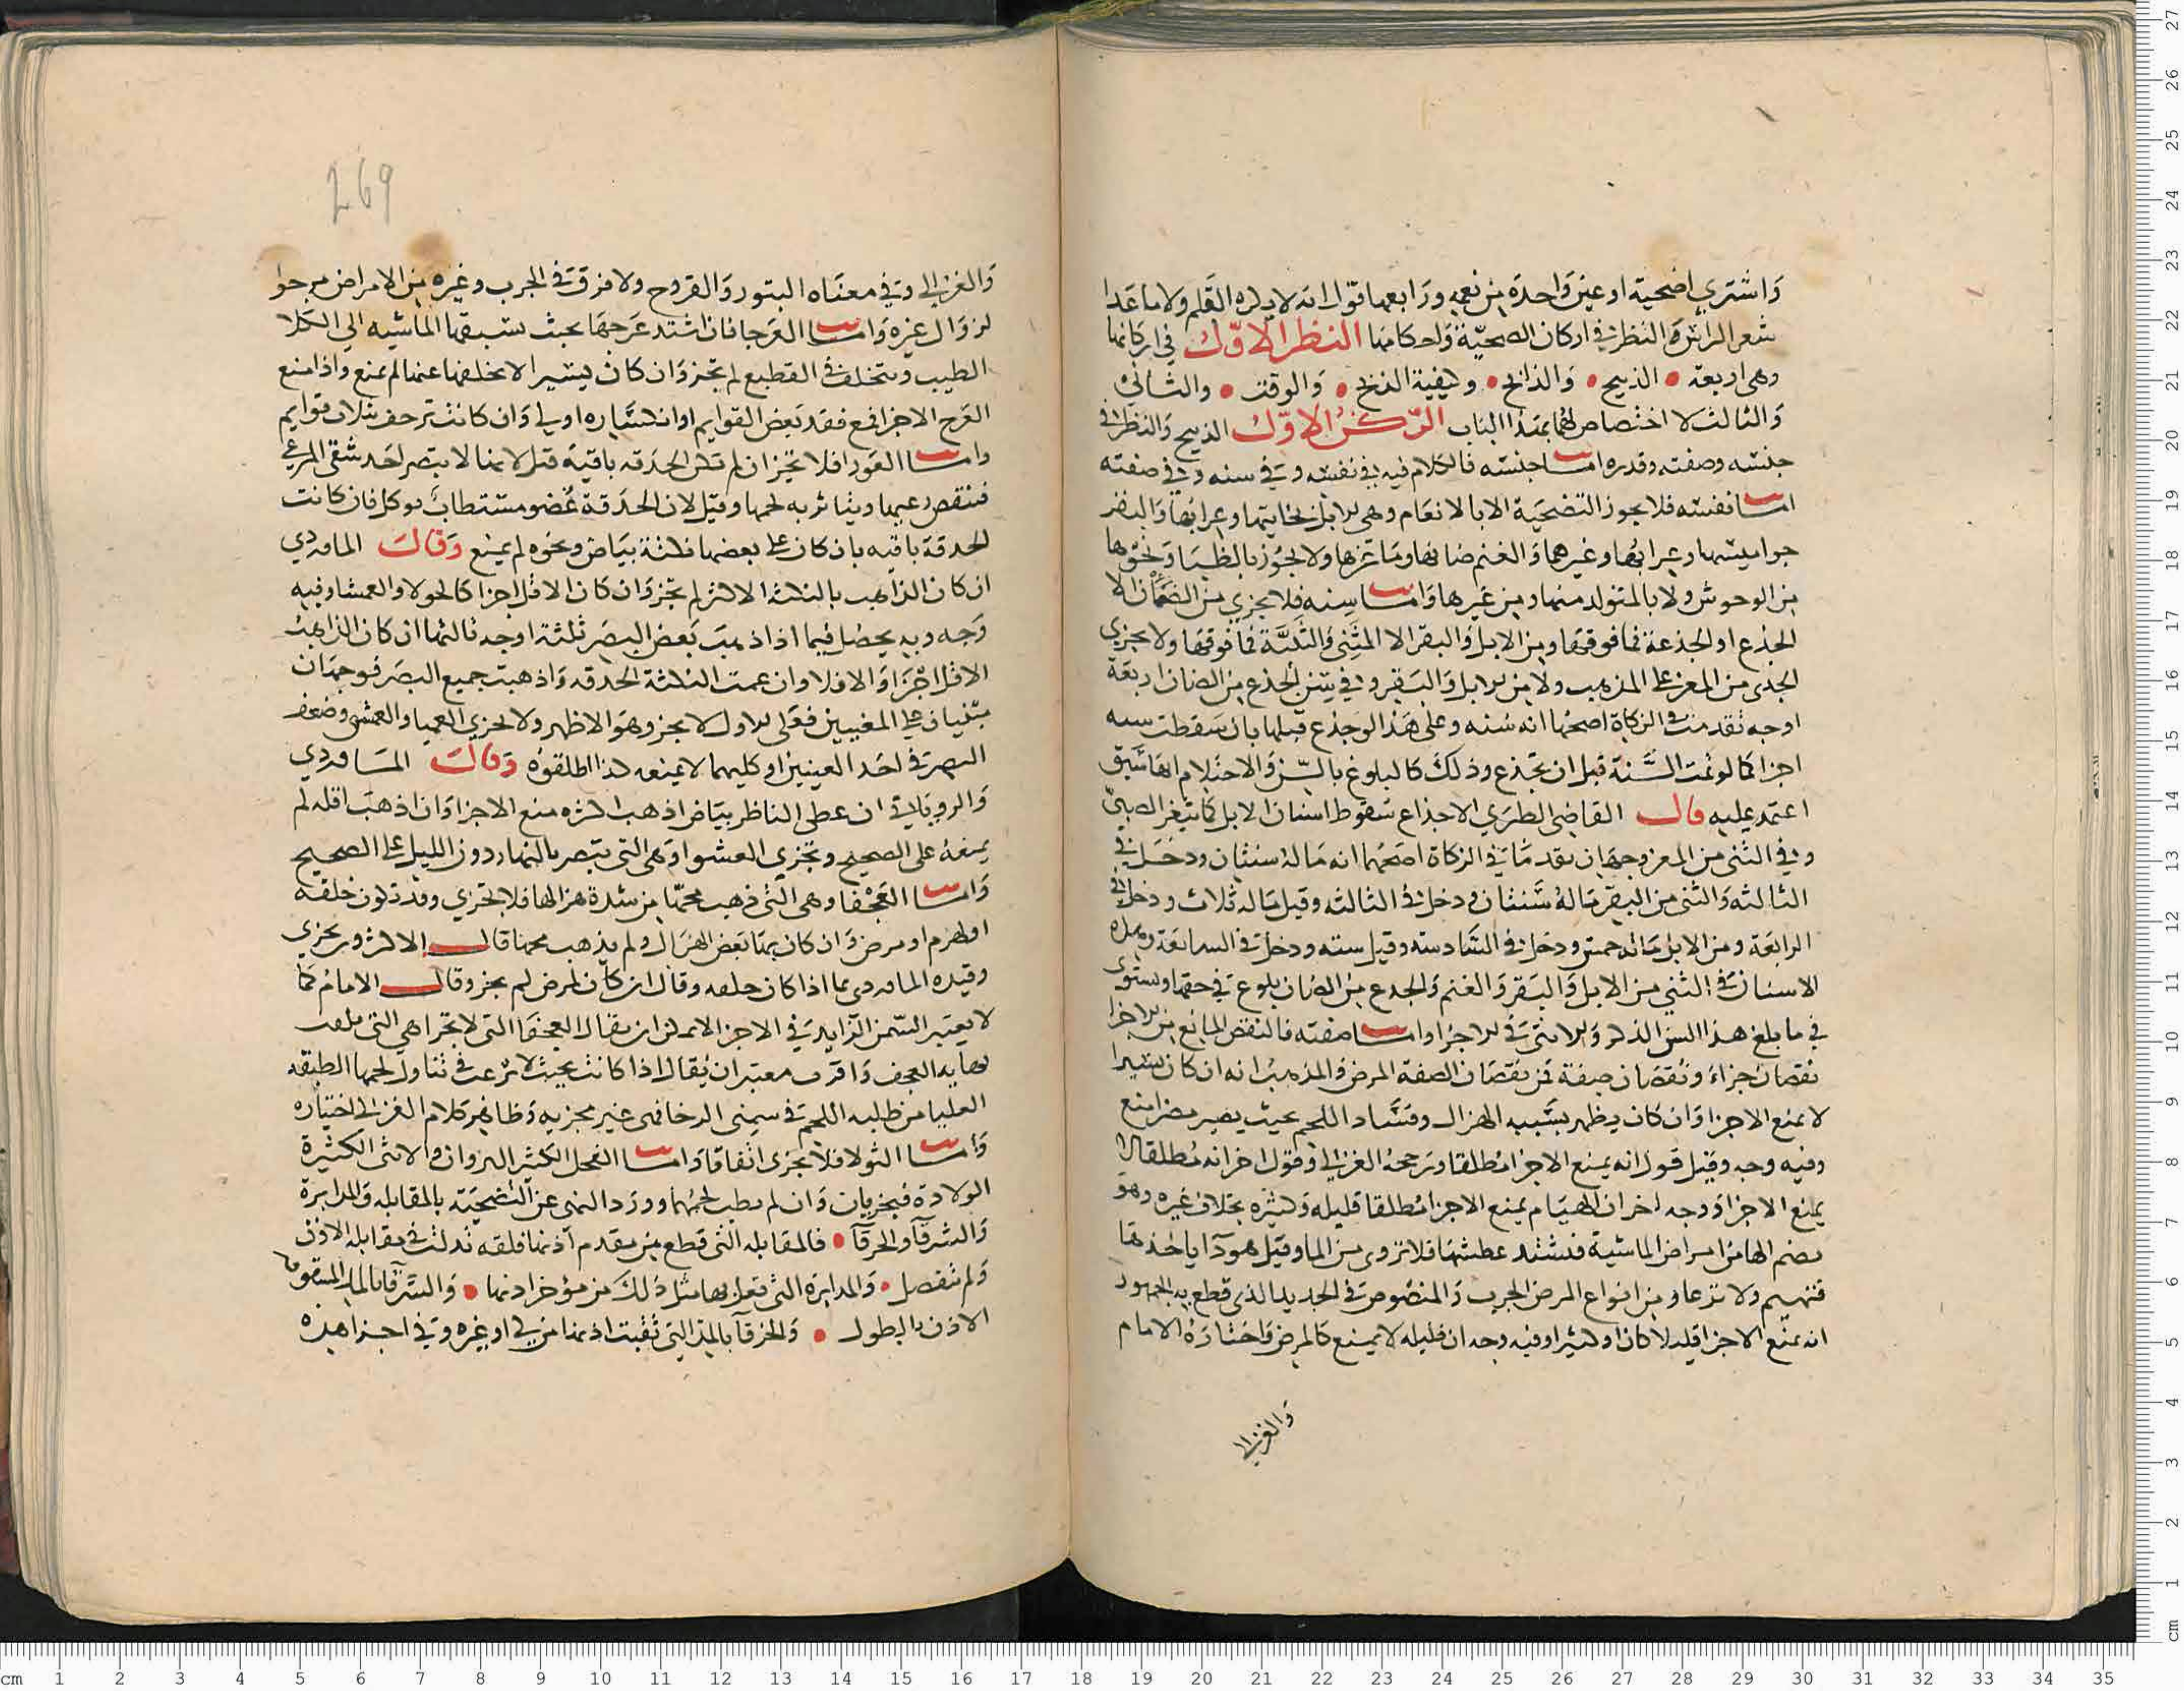 وَاشتري اضحية او عين وَاحدة من نعمه ورابعها قوْل انه لا يكره القلم ولا ما عَدا
شعر الراس وَالنظر في اركان الضحيّة وَاحكامها النظر الاوّل في اركانها
وهى اربعة • الذبيح • وَالذابح • وكيفية الذبح • وَالوقت • والثاني
وَالثالث لا اختصاص لهما بهذا الباب الرّكن الاوّل الذبيح وَالنظر في
جنسه وصفته وقدره امـا جنسه فالكلام فيه في نفسه وفي سنه وفي صفته
امـا نفسه فلا يجوز التضحيَة الا بالانعام وهى الابل بخاتيها وعرابها وَالبقر
جواميسها وعرابها وغيرهما وَالغنم ضانها وماعزها ولا يجُوز بالظبَا وَنحوها
من الوحوش ولا بالمتولد منها ومن غيرها وَامـا سنه فلا يجزي من الضّان الا
الجذع او الجذعة فما فوقها ومن الابل وَالبقر الا المثنى وَالثنيّة فما فوقها ولا يجزي
الجذع من المعز على المذهب ولا من الابل وَالبقر وفي سن الجذع من الضان اربعة
اوجه تقدمت في الزكاة اصحها انه سَنه وعلى هَذا لو جذع قبلها بان سَقطت سنه
اجزا كما لو تمت السَّنة قبل ان تجذع وذلك كالبلوغ بالسّن وَالاحتلام ايها سَبق
اعتمد عليه قال القاضي الطبري الاجذاع سقوط اسنان الابل كما يثغر الصبيّ
وفي الثنى من المعز وجهَان تقدمَا في الزكاة اصَحهما انه مَا لهُ سنتان ودخَل في
الثالثه وَالثنى من البقر مَا لهُ سَنتان ودخل في الثالثه وقيل مَا له ثلاث ودخل في
الرابعَة ومن الابل مَا له خمس ودخل في السَّادسه وقيل سته ودخل في السابعَة وهذه
الاسنان في الثني من الابل وَالبَقر وَالغنم وَالجذع من الضان بلوغ في حقها ويستوى
في ما بلغ هذا السن الذكر وَالانثى في الاجزا وامـا صفته فالنقص المانع من الاجزا
نقصان جزاءُ ونُقصَان صِفة فمن نقصَان الصفة المرض وَالمذهبُ انه ان كان يسَيرا
لا يمنع الاجزا وَان كان يظهر بسَببه الهزال وفسَاد اللحم بحيث يصير مضرا منع
وفيه وجه وقيل قول انه يمنع الاجزا مُطلقا ورجحهُ الغزالي وَقول اخر انه مُطلقا لا
يمنع الاجزا وَوجه اخر ان الهيَام يمنع الاجزا مُطلقا قليله وَكثيره بخلاف غيره وهو
بضم الها من امراض الماشية فتشتد عطشها فلا تروى من الما وقيل هو دَا ياخذها
فتهيم ولا ترعا ومن انواع المرض الجرب وَالمنصُوص في الجديد الذي قطع به الجمهور
انه يمنع الاجزا قليلا كان او كثيرا وفيه وجه ان قليله لا يمنع كالمرض وَاختارهُ الامام
وَالغزالي
269
وَالغزالي وفي معناه البثور وَالقروح ولا فرق في الجرب وغيره من الامراض مرجوا
لزوَال غيره وَامـا العرجا فان اشتد عَرجها بحيث تسبقها الماشيه الى الكلا
الطيب وتتخلف في القطيع لم تجز وَان كان يسيرا لا يخلفها عنها لم يمنع واذا منع
العَرج الاجزا فمع فقد بَعض القوايم او انكسَاره اولى وَان كانت تزحف بثلاث قوايم
وامـا العَورا فلا تجزي ان لم تكن الحدَقه باقيَة قيل لانها لا تبصر احَد شقى المرعى
فينقص رعيها ويتاثر به لحمها وقيل لان الحدَقة عُضو مستطاب يوكل فان كانت
الحدقة باقيه بان كان على بعضها نكتة بيَاض ونحوه لم يمنع وَقَالَ الماوردي
ان كان الذاهب بالنكتة الاكثر لم تجز وَان كان الاقل اجزا كالحولا والعمشا وفيه
وَجه وبه يحصُل فيما اذا ذهبَ بَعض البصَر ثلثة اوجه ثالثها ان كان الذاهبُ
الاقل اجزا وَالا فلا وان عمت النكتة الحدقه وَاذهبت جميع البصَر فوجهان
مبنيان على المغيبين فعَلى الاول لا يجز وهوَ الاظهر ولا تجزي العميا والعمش وضعف
البصر في احَد العينين او كليهما لا يمنعه كذا اطلقوهُ وَقَالَ المـاوردي
وَالروياني ان غطى الناظر بيَاض اذهب اكثره منع الاجزا وَان اذهبَ اقله لم
يمنعهُ على الصحيح وتجزي العشوا وَهى التى تبصر بالنهار دون الليل على الصحيح
وَامـا العَجْفا وهى التى ذهب مخّها من شدة هزالها فلا تجزي وقد تكون خلقة
او لهرم او مرض وَان كان بها بَعض الهزَال ولم يذهب مخها قال الاكثرون يجزي
وقيده الماوردي بما اذا كان خلقه وقال ان كان لمرض لم يجز وقال الامام كما
لا يعتبر السّمن الزايد في الاجزا لا يمكن ان يقال العجفا التى لا تجزا هي التى بلغت
نهاية العجف وَاقرب معتبر ان يُقال اذا كانت بحيث لا يرغب في تناول لحمها الطبقه
العليا من طلبه اللحم في سنى الرخا فهى غير مجزيه وَظاهر كلام الغزالي اختياره
وَأمـا الثولا فلا تجزى اتفاقا وَامـا الفحل الكثير النزوان والانثى الكثيرة
الولادة فيجزيان وَان لم يطب لحمُهما وورَد النهى عن التضحيَة بالمقابله وَالمدابرة
وَالشرقآ والخرقآ • فالمقابله التى قطع من مقدم اذنها فلقه تدلت في مقابله الاذن
وَلم تنفصل • وَالمدابرة التى فعل بها مثل ذلك من مؤخر اذنها • وَالشرقا بالمد المشقوقه
الاذن بالطول • وَالخرقآ بالمد التى ثقبت اذنها من كي او غيره وفي اجزا هذه